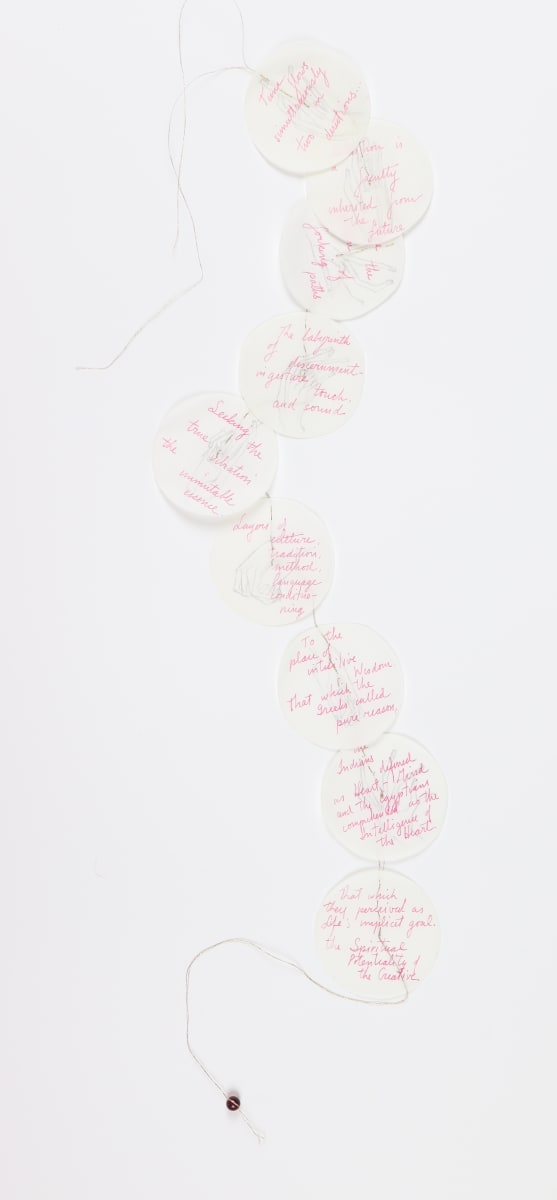 Time flows
simultaneously
in
two directions...
is
partly
inherited from
the future
forking of the
paths
The labyrinth
of discernment-
in gesture, touch,
and sound
Seeking the
true vibration
the
inimitable
essence
Layers of
culture,
tradition,
method,
language
conditio-
ning
To the
place of
intuitive
Wisdom
that which the
Greeks called
pure reason,
the
Indians defined
as Heart-Mind
and the Egyptians
comprehended as the
Intelligence of
the Heart
that which
they perceived as
life's implicit goal.
the Spiritual
Potentiality of
the Creative